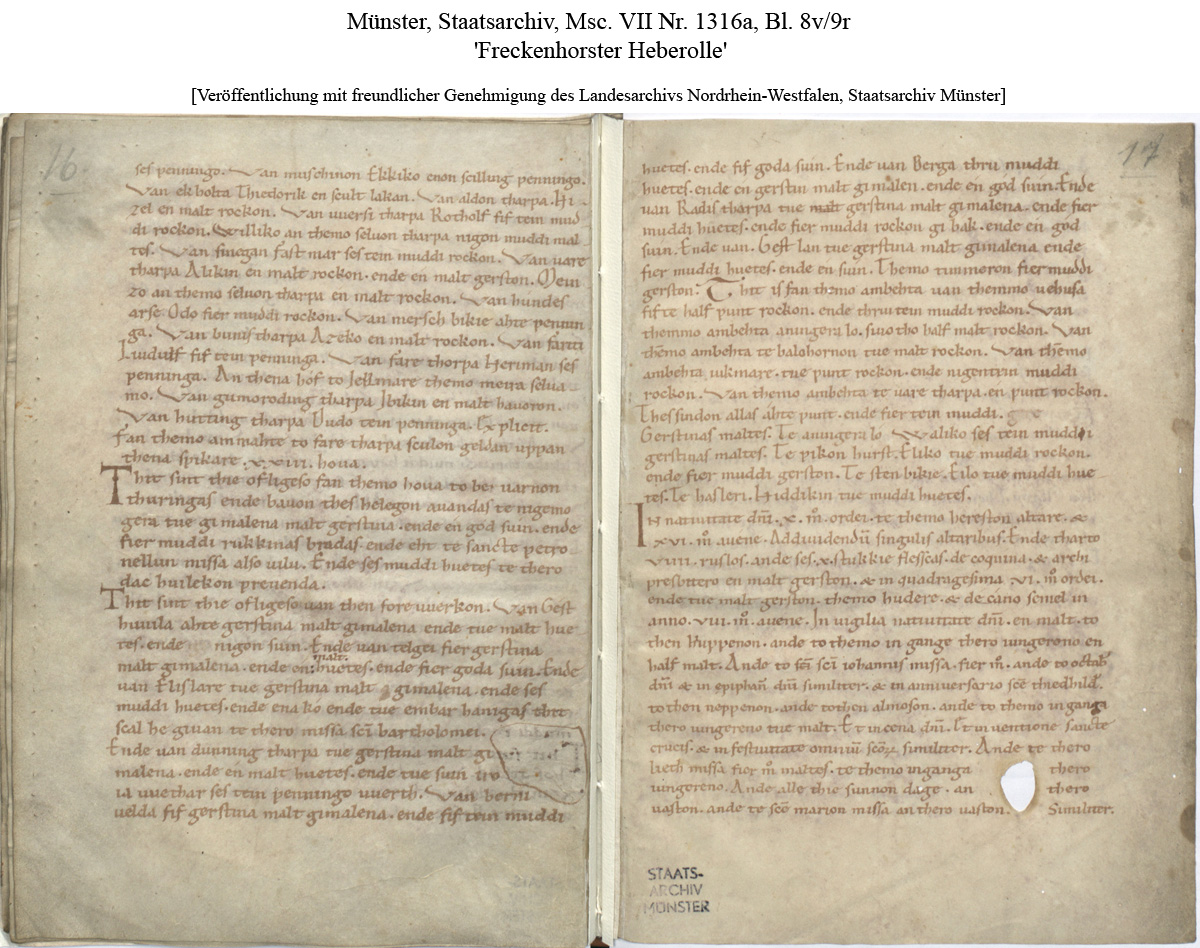 Münster, Staatsarchiv, Msc. VII Nr. 1316a, Bl. 8v/9r
'Freckenhorster Heberolle'
[Veröffentlichung mit freundlicher Genehmigung des Landesarchivs Nordrhein-Westfalen, Staatsarchiv Münster]
16
ses penningo. Van musehinon Ekkiko enon scilling penningo.
Van ekholta Thiedorik en scult lakan. Van aldon tharpa. Hi
zel en malt rockon. Van uuersi tharpa Rotholf fif tein mud
di rockon. Williko an themo seluon tharpa nigon muddi mal
tes. Van sinegan fast mar ses tein muddi rockon. Van uare
tharpa Alikin en malt rockon. ende en malt gerston. Mein
zo an themo seluon tharpa en malt rockon. Van hundes
arse Odo fier muddi rockon. Van mersch bikie ahte pennin
ga. Van bunistharpa Azeko en malt rockon. Van
Liudulf fif tein penninga. Van fare thorpa Heriman ses
penninga. An thena hof to Jellmare themo meira selua
mo. Van gumoroding tharpa Ibikin en malt
Van hutting tharpa Uudo tein penninga. Explicit.
Fan themo ammahte to fare tharpa sculon geldan uppan
thena spikare .x.viii. houa.
Thit sint thie ofligeso fan themo houa to
thuringas ende bauon thes helegon auandas te nigemo
gera tue gimalena malt gerstina. ende en god suin. ende
fier muddi rukkinas bradas. ende eht te sancte petro
nellun missa also uilu. Ende ses muddi huetes te thero
dac huilekon preuenda.
Thit sint thie ofligeso uan then foreuuerkon. Van Gest
huuila ahte gerstina malt gimalena ende tue malt hue
tes. ende nigon suin. Ende uan telgei fier gerstina
malt
malt gimalena. ende en huetes. ende fier goda suin. Ende
uan Elislare tue gerstina malt gimalena. ende ses
muddi huetes. ende ena ko ende tue embar hanigas thit
scal he giuan te thero missa sci bartholomei.
Ende uan dunning tharpa tue gerstina malt gi
malena. ende en malt huetes. ende tue suin
ia uuethar ses tein penningo uuerth. Van berni
uelda fif gerstina malt gimalena. ende fif tein muddi
17
huetes. ende fif goda suin. Ende uan Berga thru muddi
huetes. ende en gerstin malt gimalen. ende en god suin. Ende
uan Radis tharpa tue malt gerstina malt gimalena. ende fier
muddi huetes. ende fier muddi rockon gi bak. ende en god
suin. Ende uan. Gest lan tue gerstina malt gimalena ende
fier muddi huetes. ende en suin. Themo timmeron fier muddi
gerston. Thit is fan themo ambehta uan themmo uehusa
fifte half punt rockon. ende thrutein muddi rockon. Van
themmo ambehta anuigera lo. suotho half malt rockon. Van
themo ambehta te balohornon tue malt rockon. Van themo
ambehta uikmare. tue punt rockon. ende nigentein muddi
rockon. Van themo ambehta te uare tharpa. en punt rockon.
Thessindon allas ahte punt. ende fier tein muddi.
Gerstinas maltes. Te anuigera lo Waliko ses tein muddi
gerstinas maltes. Te pikon hurst. Eliko tue muddi rockon.
ende fier muddi gerston. Te sten bikie. Eilo tue muddi hue
tes. Te hasleri. Hiddikin tue muddi huetes.
In natiuitate dni. x. m. ordei. te themo hereston altare. &
xvi. m auene. Addiuidendu singulis altaribus. Ende tharto
viiii. ruslos. ande ses. x. stukkie flescas. de coquina. & a
presbitero en malt gerston. & in quadragesima vi. m ordei.
ende tue malt gerston. themo hudere. & decano semel in
anno. vii. m. auene. In uigilia natiuitate dni. en malt. to
then Huppenon. ande to themo in gange thero iungereno en
half malt. Ando to sci iohannis missa. fier m. ando to octab
dni & in epiphan dni similiter. & in anniuersario sce thiedhild.
to then neppenon. ande to then almoson. ande to themo in ganga
thero iungereno tue malt. Et in cena dni. Et in uentione sancte
crucis. & in festiuitate omniu scoru similiter. Ande te thero
lieth missa fier m maltes. te themo inganga thero
iungereno. Ande alle thie sunnon dage. an thero
uaston. ande te sce marion missa an thero uaston. Similiter.
STAATS-
ARCHIV
MÜNSTER